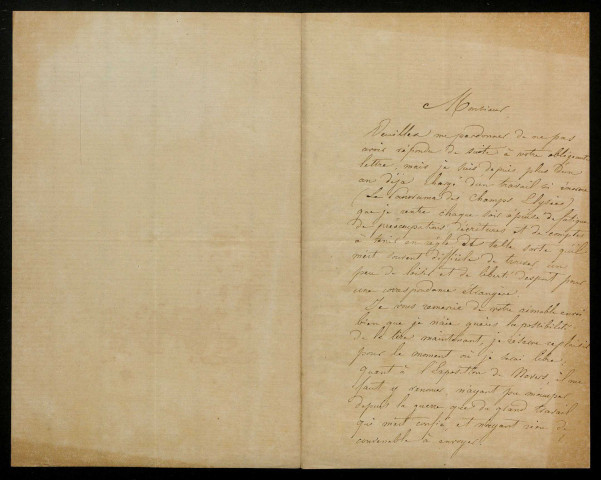 Monsieur
Veuillez me pardonner de ne pas
avoir répondu de suite à votre obligeante
lettre, mais je suis depuis plus d'un
an déja chargé d'un travail si énorme
(Le Panorama des Champs Elysées)
que je rentre chaque soir épuisé de fatigue
de préoccupations d'écritures et de comptes
à tenir en règle de telle sorte qu'il
m'est souvent difficile de trouver un
peu de loisir et de liberté d'esprit pour
une correspondance étrangère.
Je vous remercie de votre aimable envoi
bien que je n'aie qu'à la possibilité
de le lire maintenant, je réserve ce plaisir
pour le moment où je serai libre.
Quant à l'Exposition de Nevers, il me
faut y renoncer n'ayant pu m'occuper
depuis la guerre que de grand travail
qui m'est confié et n'ayant rien de
convenable à envoyer.